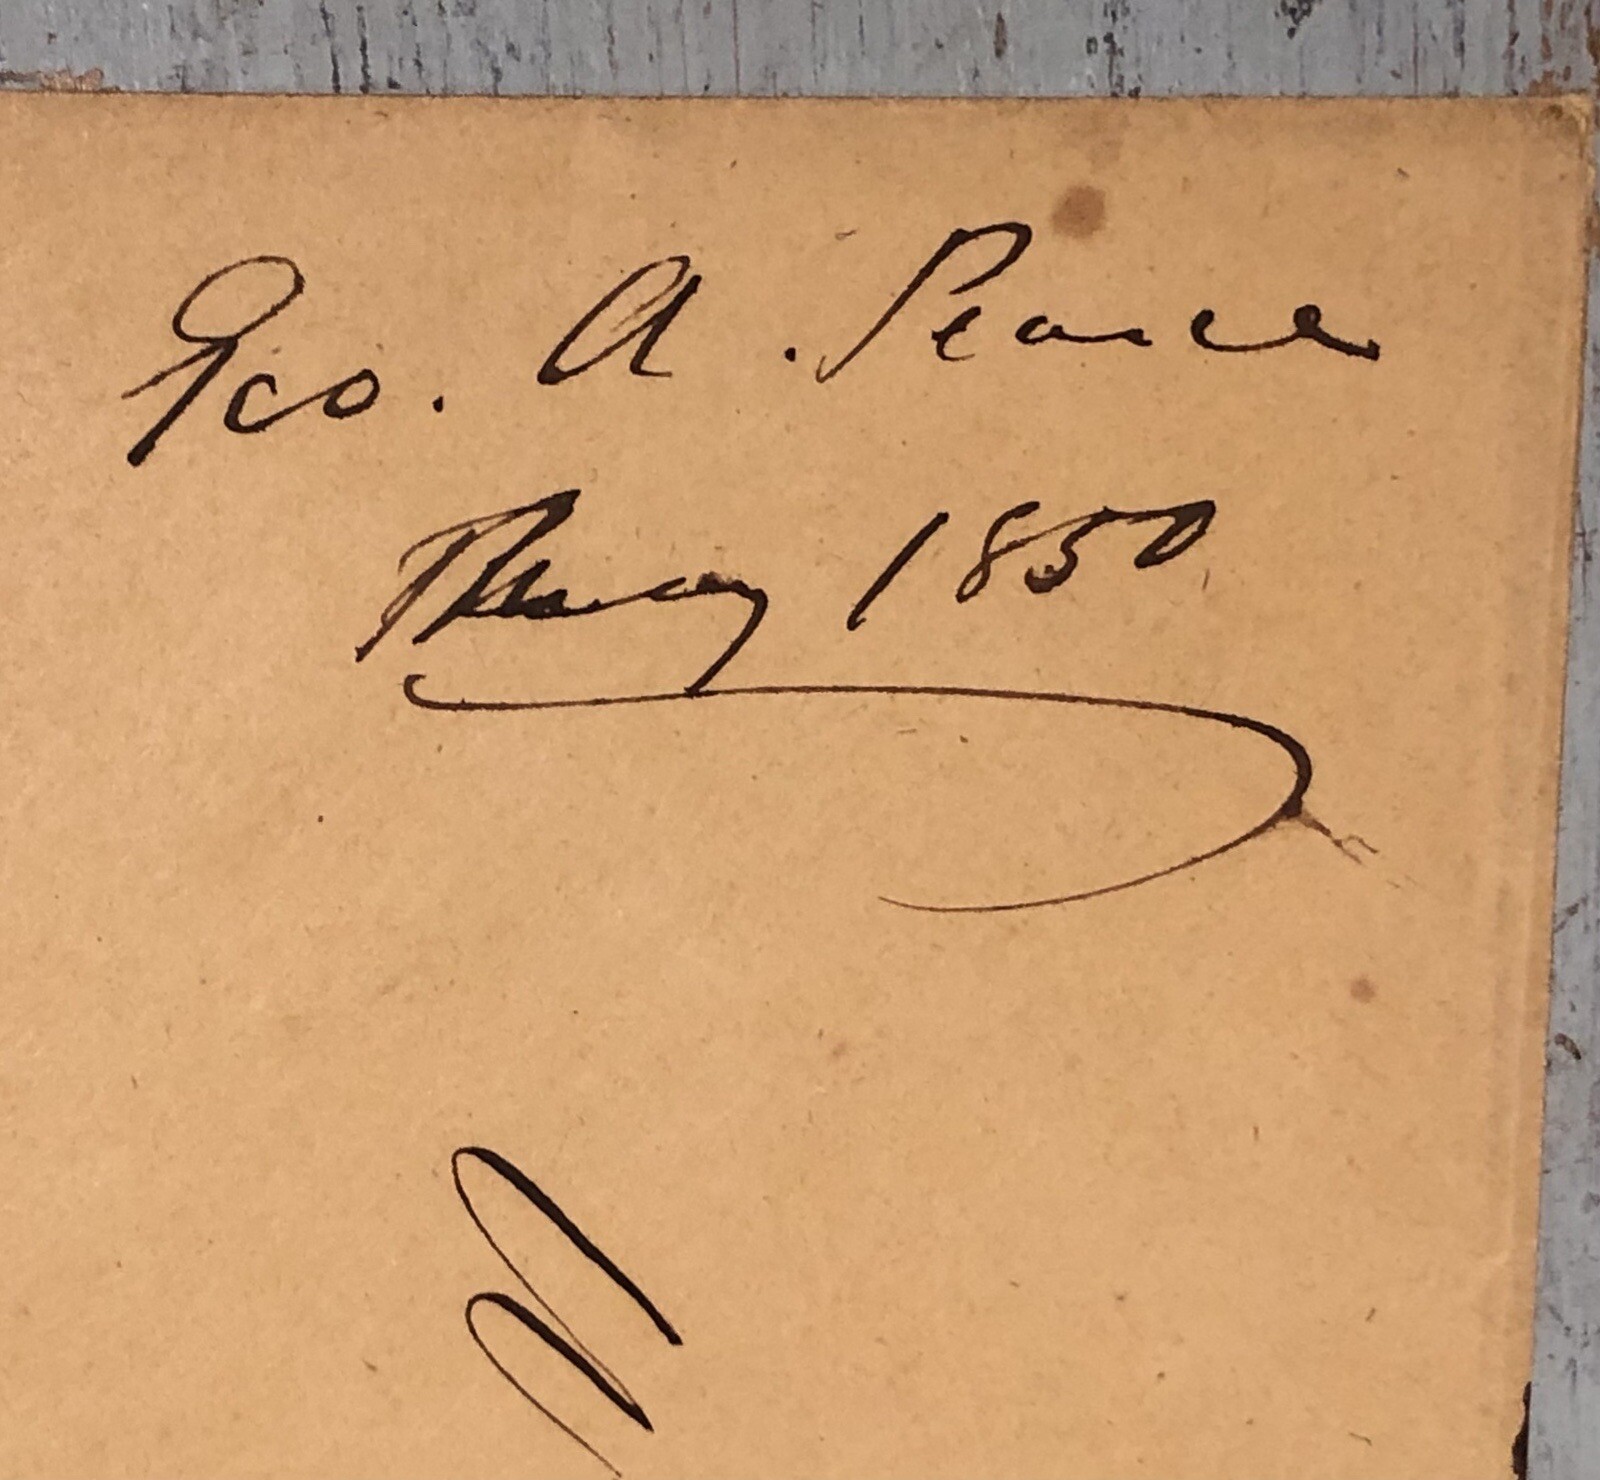 Geo. A. Pearce
May 1850